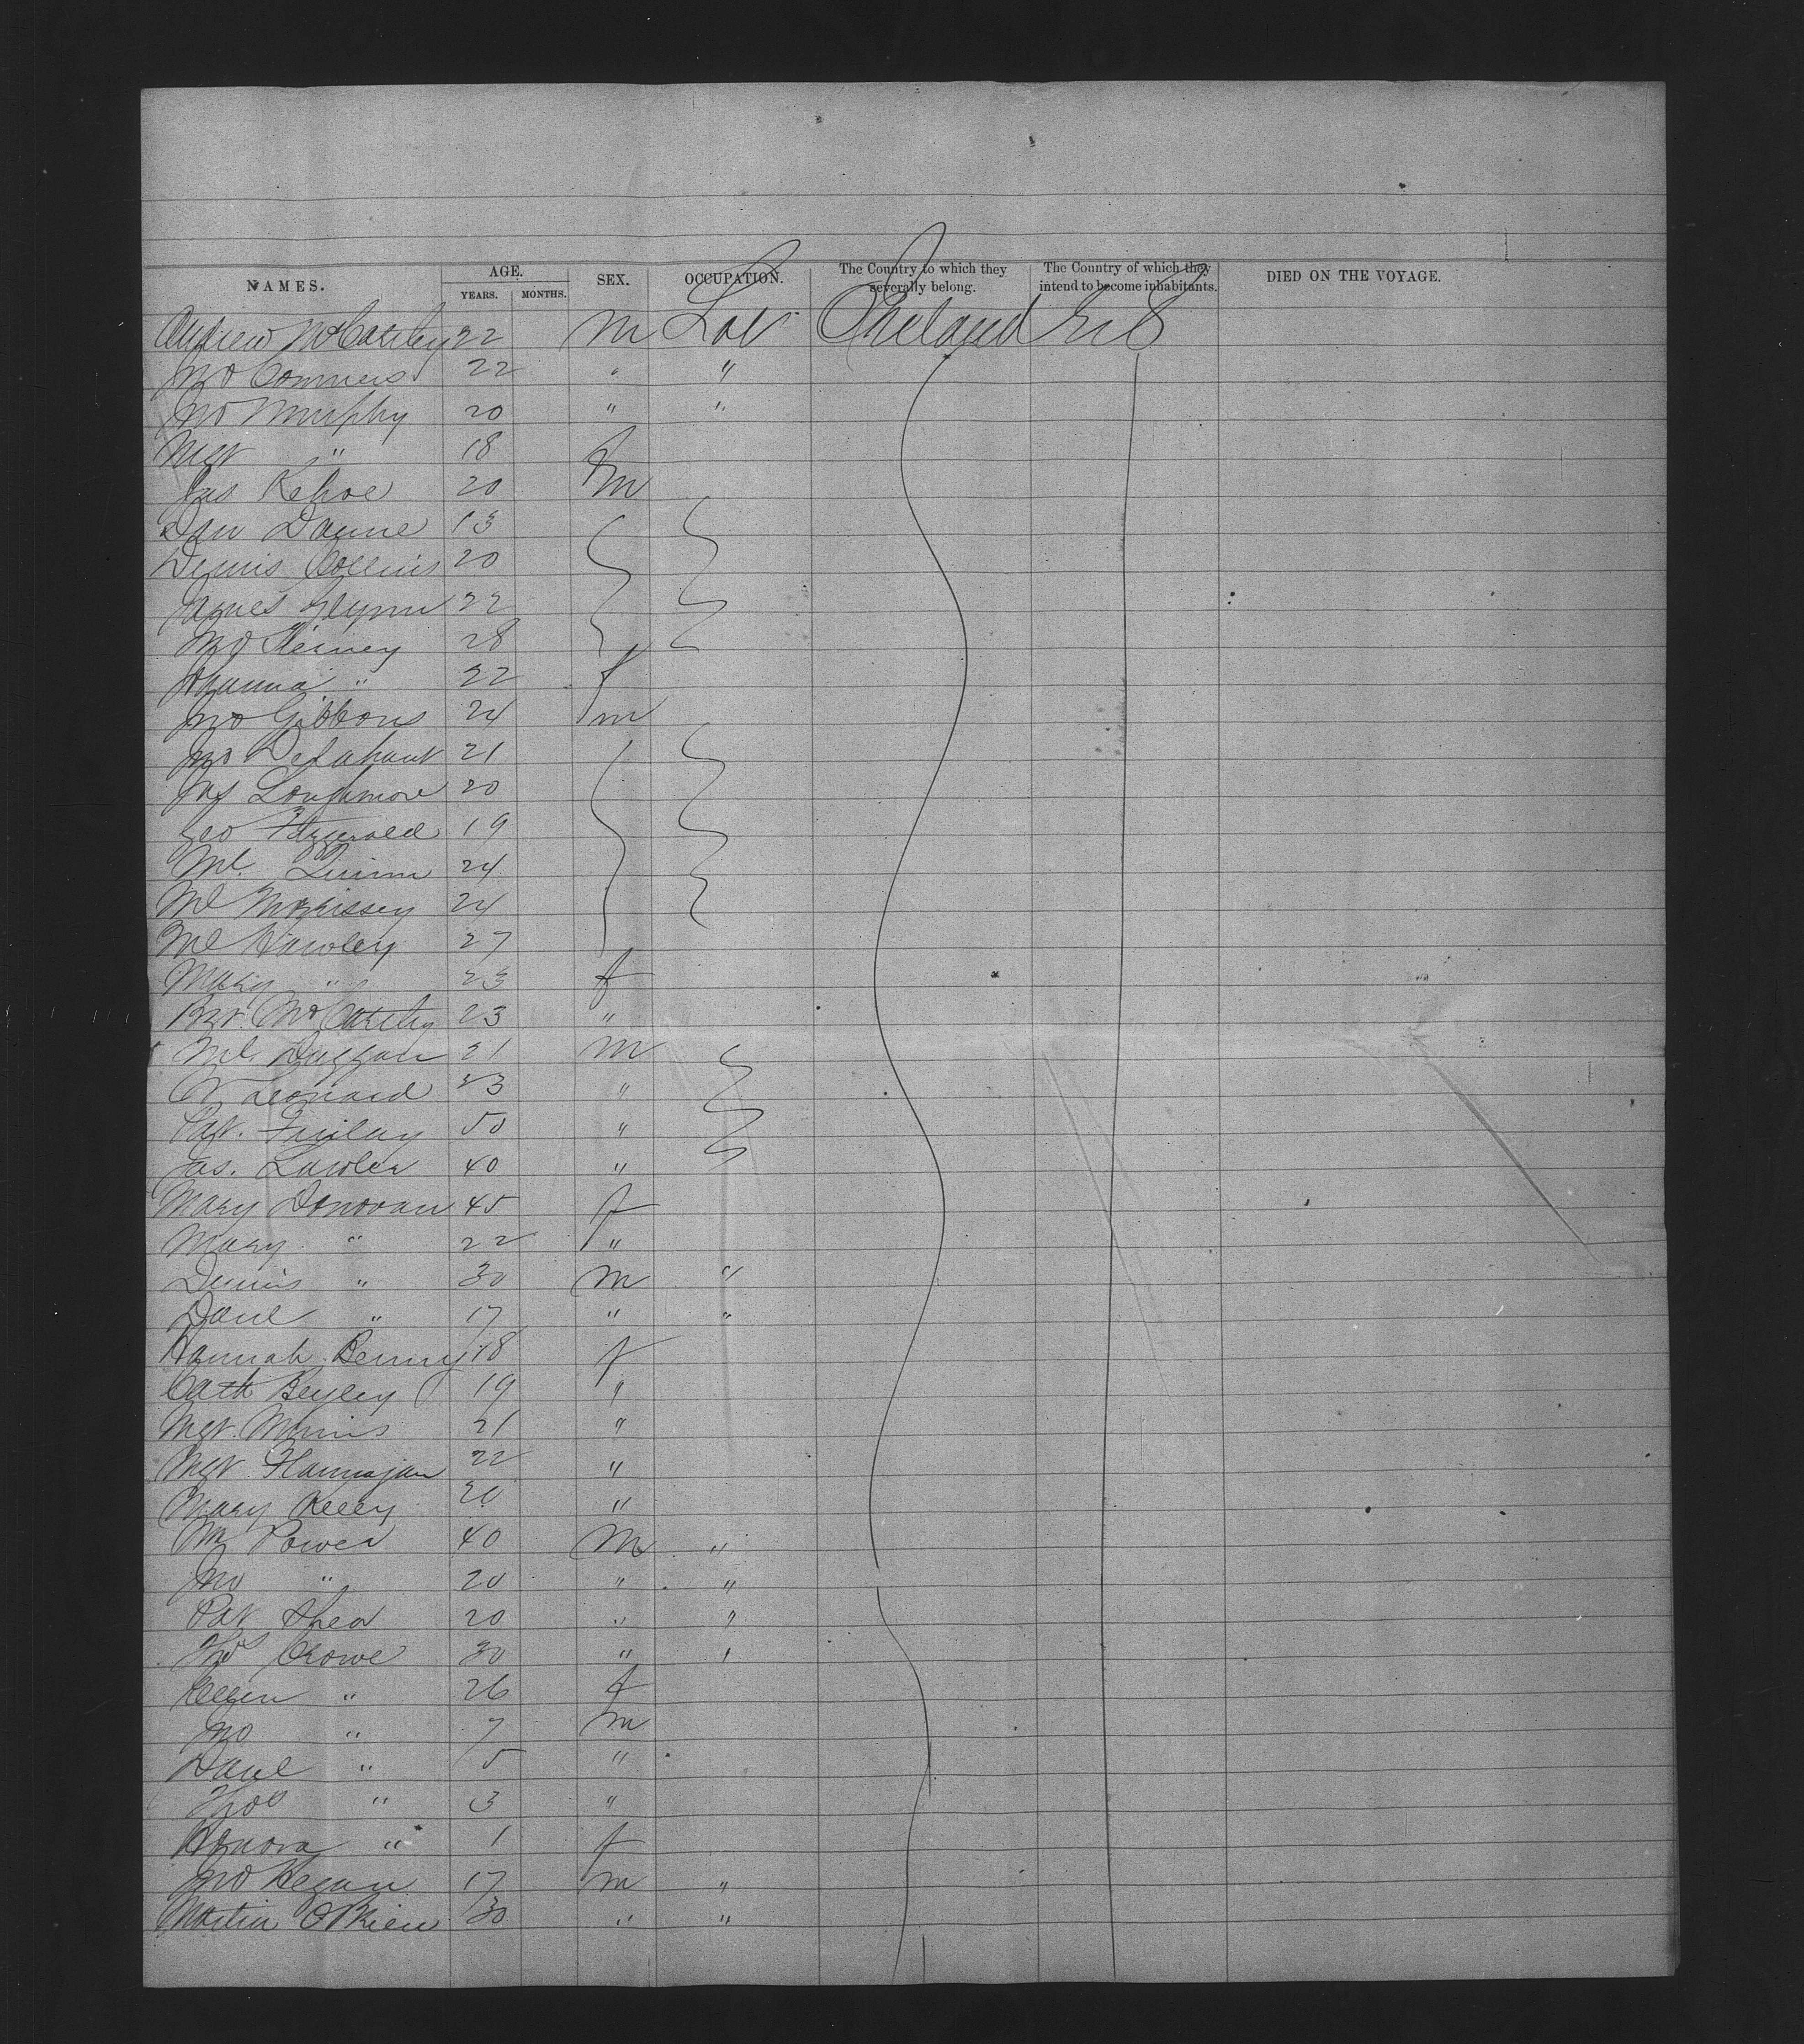 NAMES. AGE. YEARS. MONTHS. SEX. OCCUPATION. The Country to which they severally belong. The Country of which they intend to become inhabitants. DIED ON THE VOYAGE.
Andrew McCarthy 22 m Lab Ireland U S
Jno Connors 22 " "
Jno Murphy 20 " "
Mgt " 18 f
Jas Kehoe 20 m
Dan Dunne 13
Dennis Collins 20
James Glynn 22
Jno 28
Hanna " 22 f
Jno Gibbons 24 m
Jno Delahant 21
Jas Loughmore 20
Geo Fitzgerald 19
Ml. Quinn 24
Ml Morrissey 24
Ml Hawley 27
Mary " 23 f
Bgt. McCarthy 23 "
Ml. Duggan 21 m
Leonard 23 "
Pat. Finlay 50 "
Jas. Lawler 40 "
Mary Donovan 45 f
Mary " 22 "
Dennis " 30 m "
Danl " 17 " "
Hannah Benny 18 f
Cath Begley 19 "
Mgt. 21 "
Mgt Flannagan 22 "
Mary Kelly 20 "
Wm Power 40 m "
Jno " 20 " "
Pat Shea 20 " "
Thos Crowe 30 " "
Ellen " 26 f
Jno " 7 m
Danl " 5 "
Thos " 3 "
Honora " 1 f
Jno Hegan 17 m "
Martin OBrien 30 " "